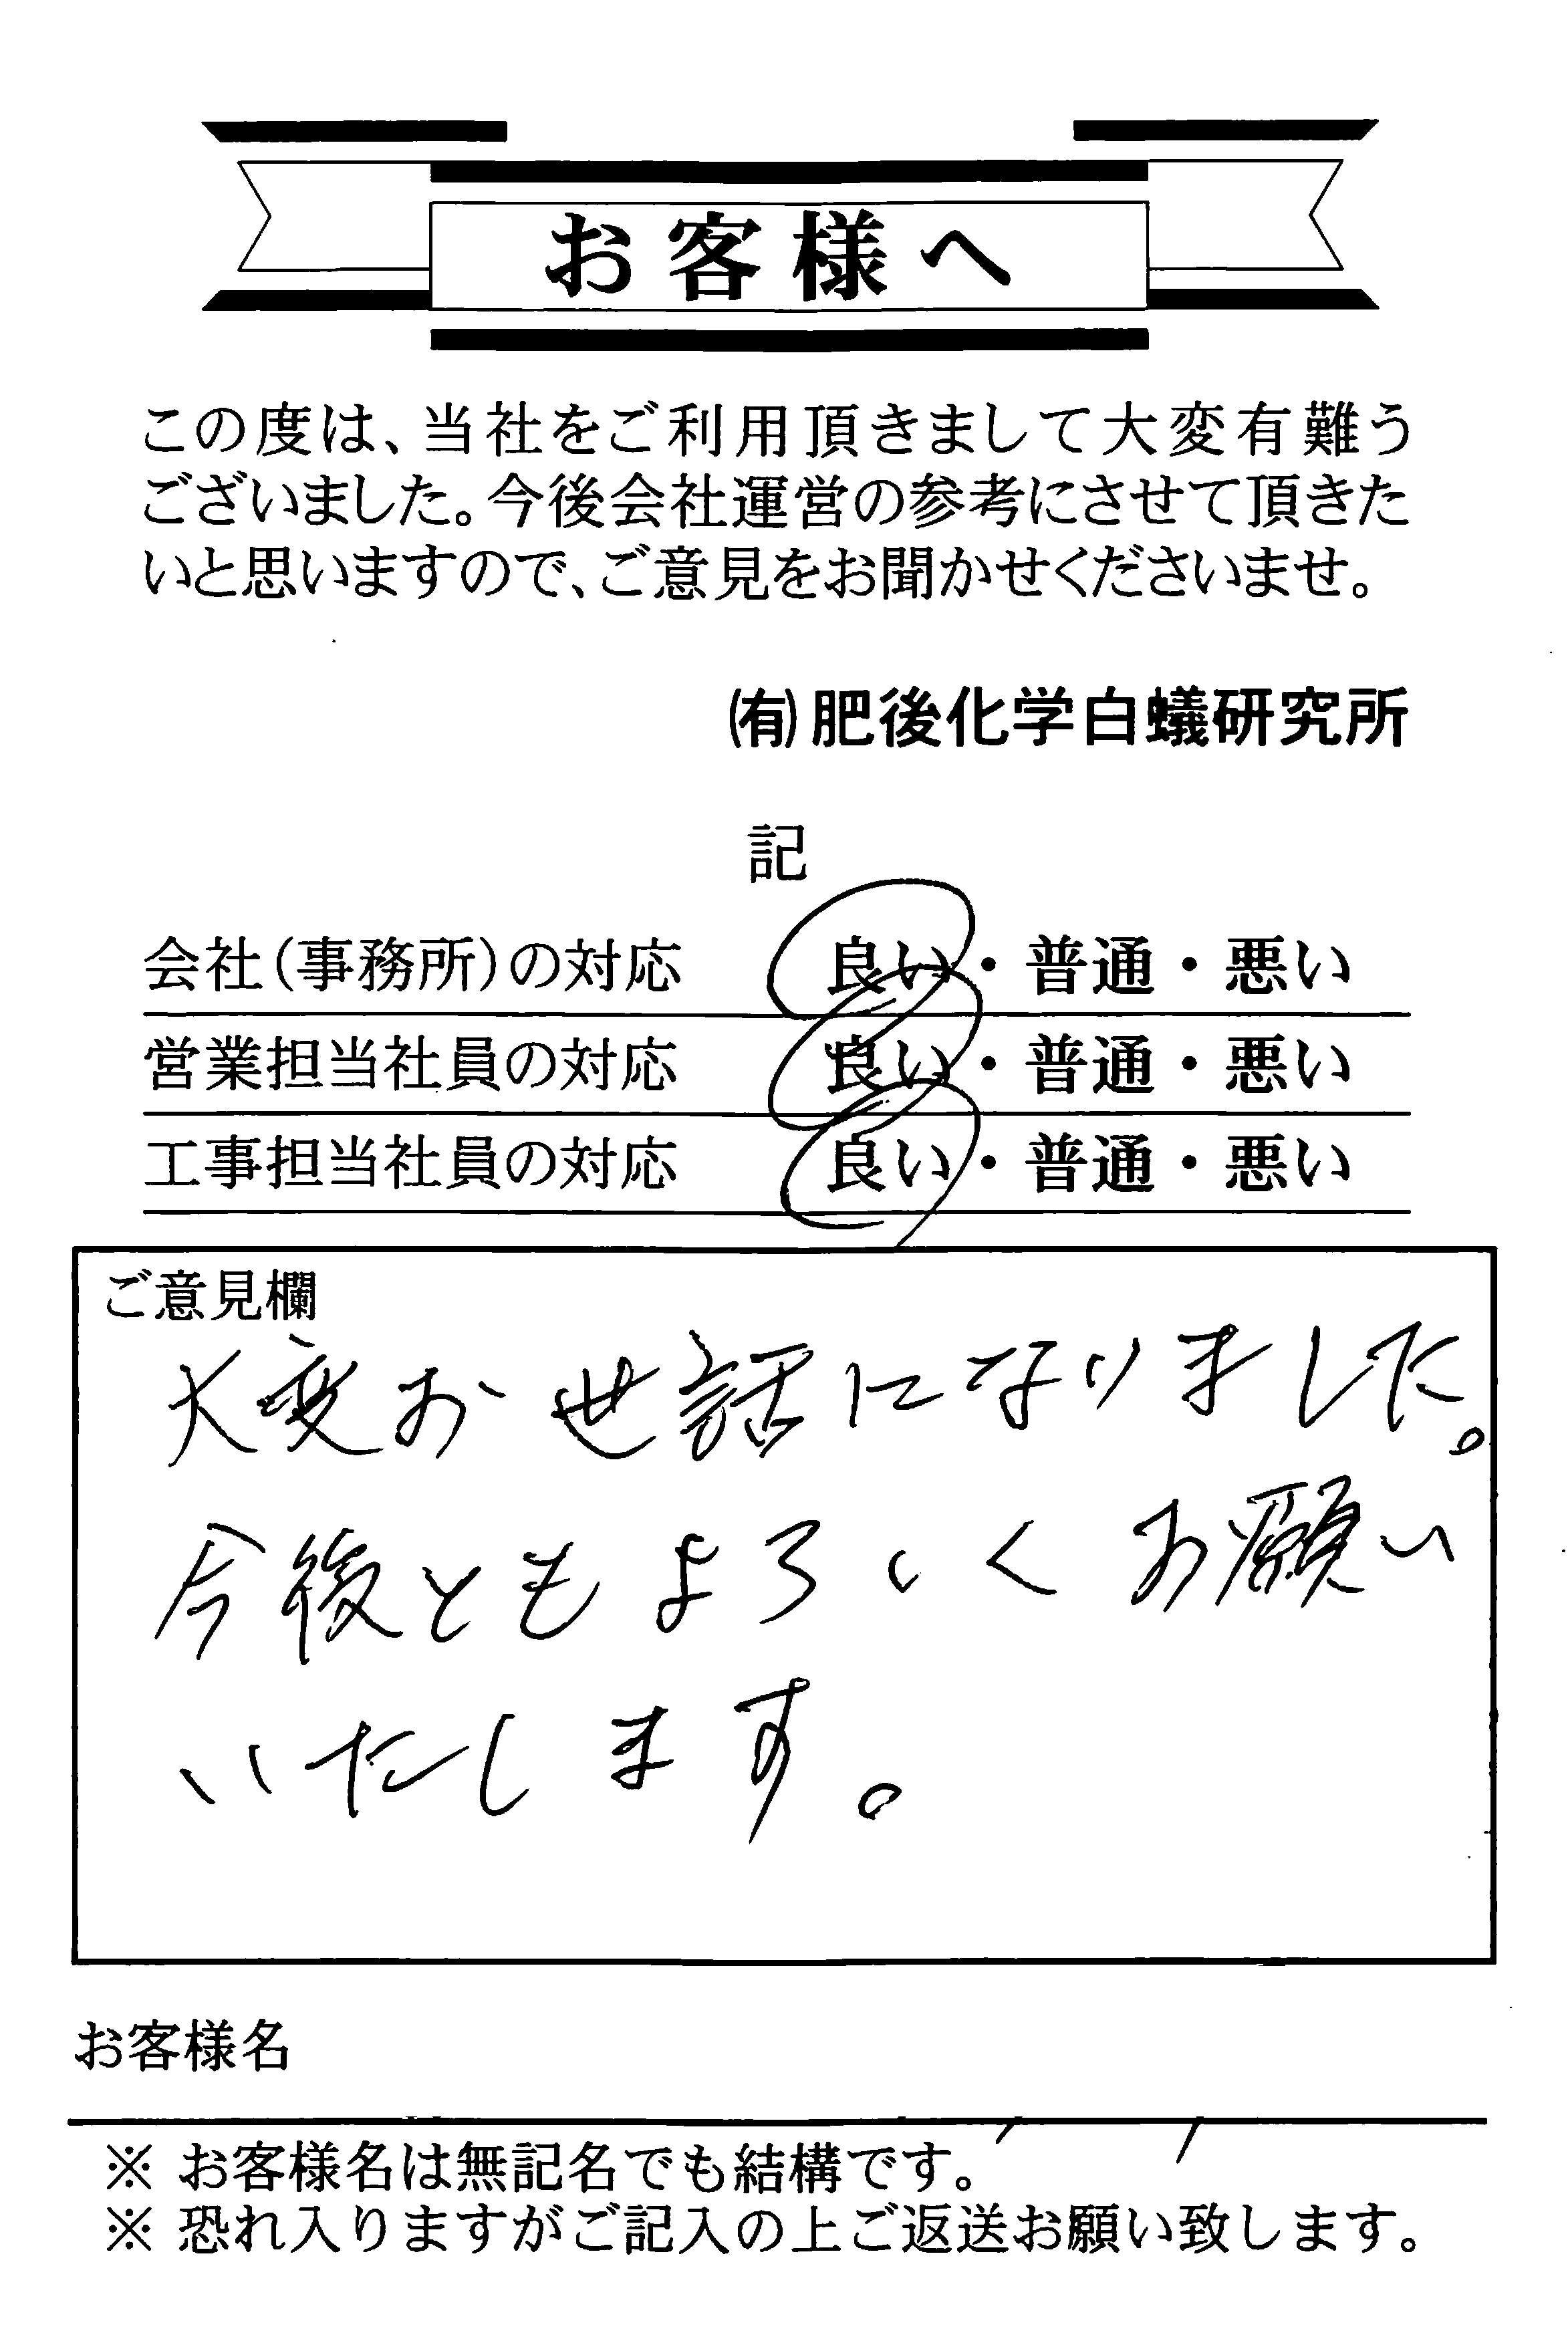 お客様へ
この度は、当社をご利用頂きまして大変有難う
ございました。今後会社運営の参考にさせて頂きた
いと思いますので、ご意見をお聞かせくださいませ。
㈲肥後化学白蟻研究所
記
会社(事務所)の対応 良い・普通・悪い
営業担当社員の対応 良い・普通・悪い
工事担当社員の対応 良い・普通・悪い
ご意見欄
大変お世話になりました。
今後ともよろしくお願い
いたします。
お客様名
※ お客様名は無記名でも結構です。
※ 恐れ入りますがご記入の上ご返送お願い致します。